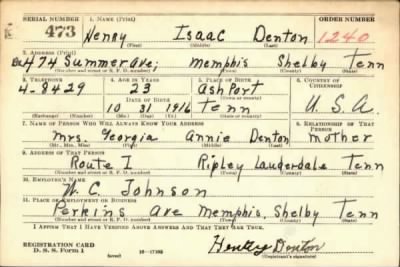 SERIAL NUMBER 1. NAME (Print) ORDER NUMBER
473 Henry Isaac Denton 1240
(First) (Middle) (Last)
2. ADDRESS (Print)
474 Summer Ave; Memphis Shelby Tenn
(Number and street or R. F. D. number) (Town) (County) (State)
3. TELEPHONE 4. AGE IN YEARS 5. PLACE OF BIRTH 6. COUNTRY OF CITIZENSHIP
4-8429 23 Ashport
DATE OF BIRTH (Town or county)
10 31 1916 Tenn U.S.A.
(Exchange) (Number) (Mo.) (Day) (Yr.) (State or country)
7. NAME OF PERSON WHO WILL ALWAYS KNOW YOUR ADDRESS 8. RELATIONSHIP OF THAT PERSON
Mrs. Georgia Annie Denton, mother
(Mr., Mrs., Miss) (First) (Middle) (Last)
9. ADDRESS OF THAT PERSON
Route 1 Ripley Lauderdale Tenn
(Number and street or R. F. D. number) (Town) (County) (State)
10. EMPLOYER'S NAME
W. C. Johnson
11. PLACE OF EMPLOYMENT OR BUSINESS
Perkins Ave Memphis, Shelby Tenn
(Number and street or R. F. D. number) (Town) (County) (State)
I AFFIRM THAT I HAVE VERIFIED ABOVE ANSWERS AND THAT THEY ARE TRUE.
REGISTRATION CARD
D. S. S. Form 1 (over) Henry Denton
(Registrant's signature)